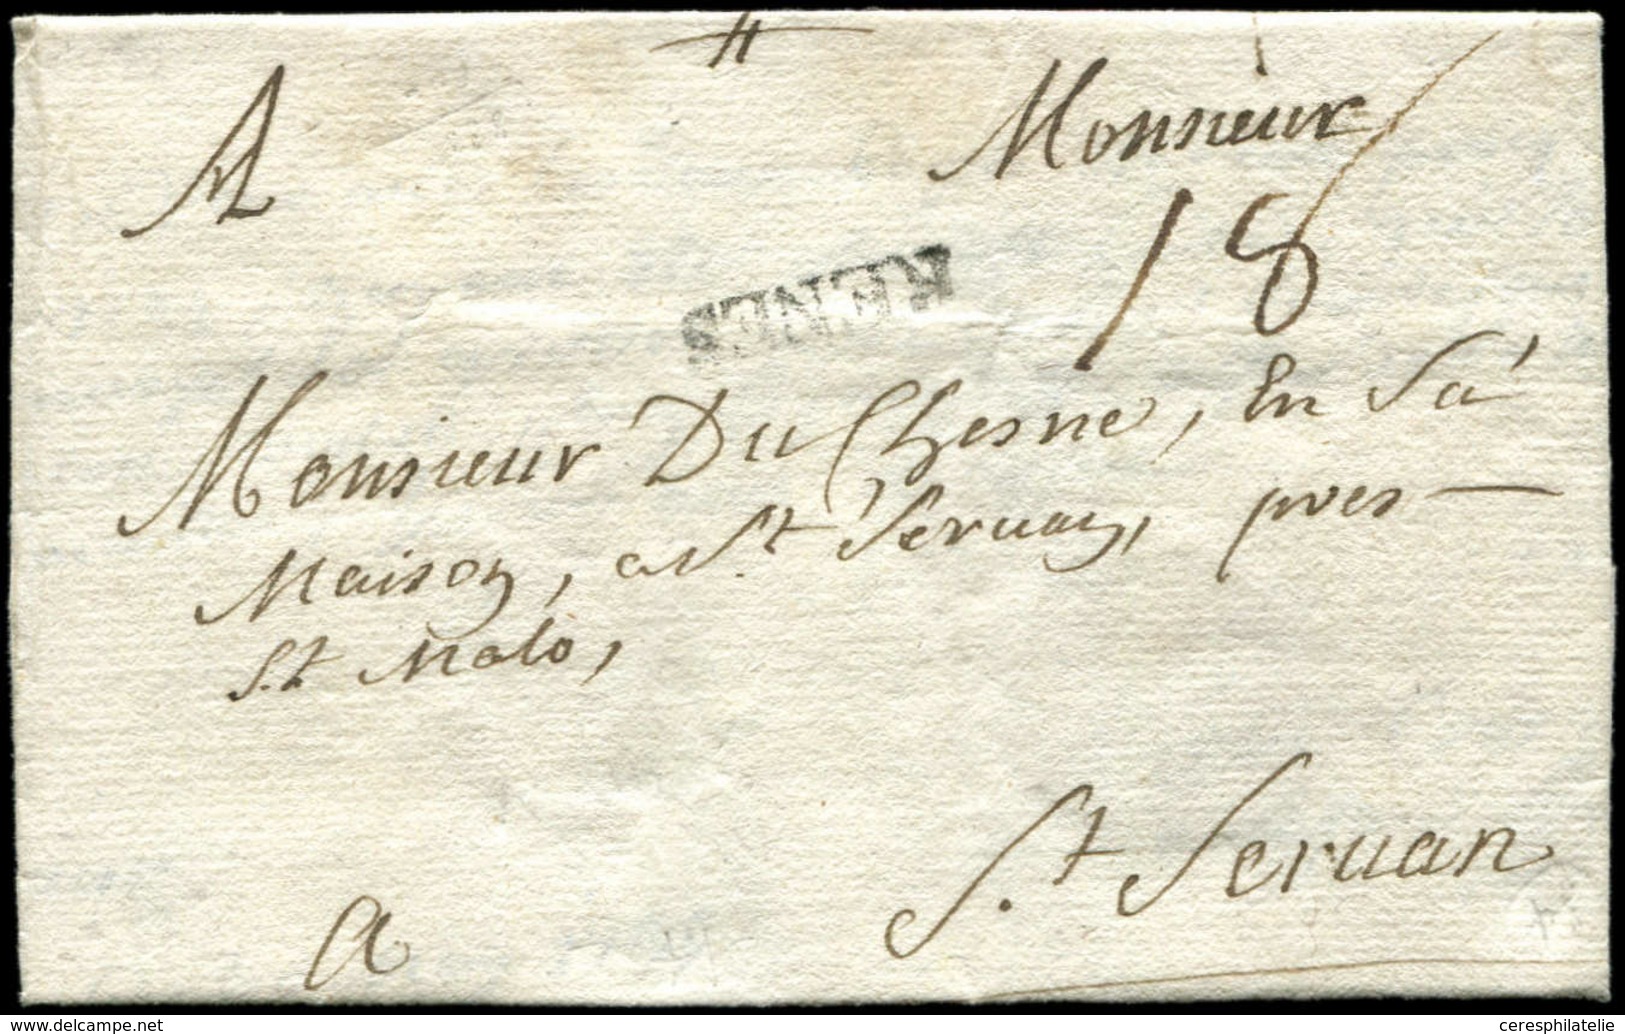 Monsieur
18
RENES
Monsieur DuChesne, En Sa
Maison, a St Seruan, pres
St Malo,
a
St Seruan
www.delcampe.net
ceresphilatelie